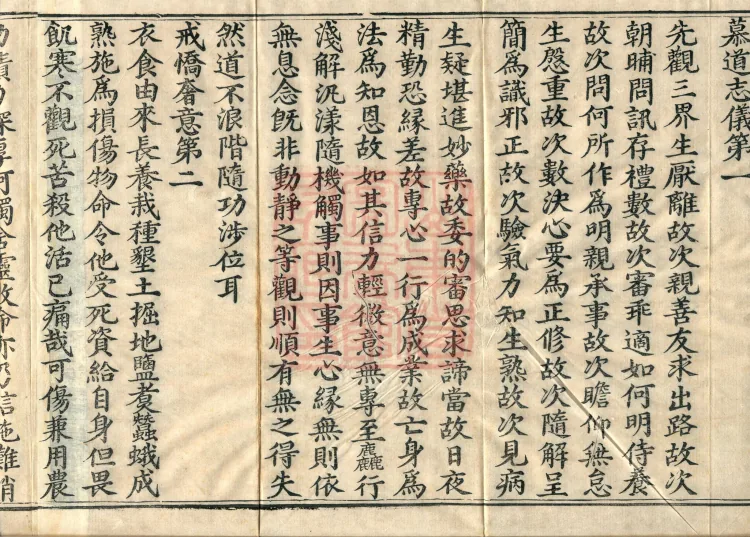 慕道志儀第一
先觀三界生厭離故次親善友求出路故次
朝晡問訊存禮數故次審乖適如何明侍養
故次問何所作為明親承事故次瞻仰無怠
生慇重故次數決心要為正修故次隨解呈
簡為識邪正故次驗氣力知生熟故次見病
生疑堪進妙藥故委的審思求諦當故日夜
精勤恐緣差故專心一行為成業故亡身為
法為知恩故如其信力輕微意無專至麤行
淺解汎漾隨機觸事則因事生心緣無則依
無息念旣非動靜之等觀則順有無之得失
然道不浪階隨功涉位耳
戒憍奢意第二
衣食由來長養栽種墾土掘地鹽煮蠶蛾成
熟施為損傷物命令他受死資給自身但畏
飢寒不觀死苦殺他活己痛哉可傷兼用農
功積力深厚何獨含靈致命亦乃信施難消